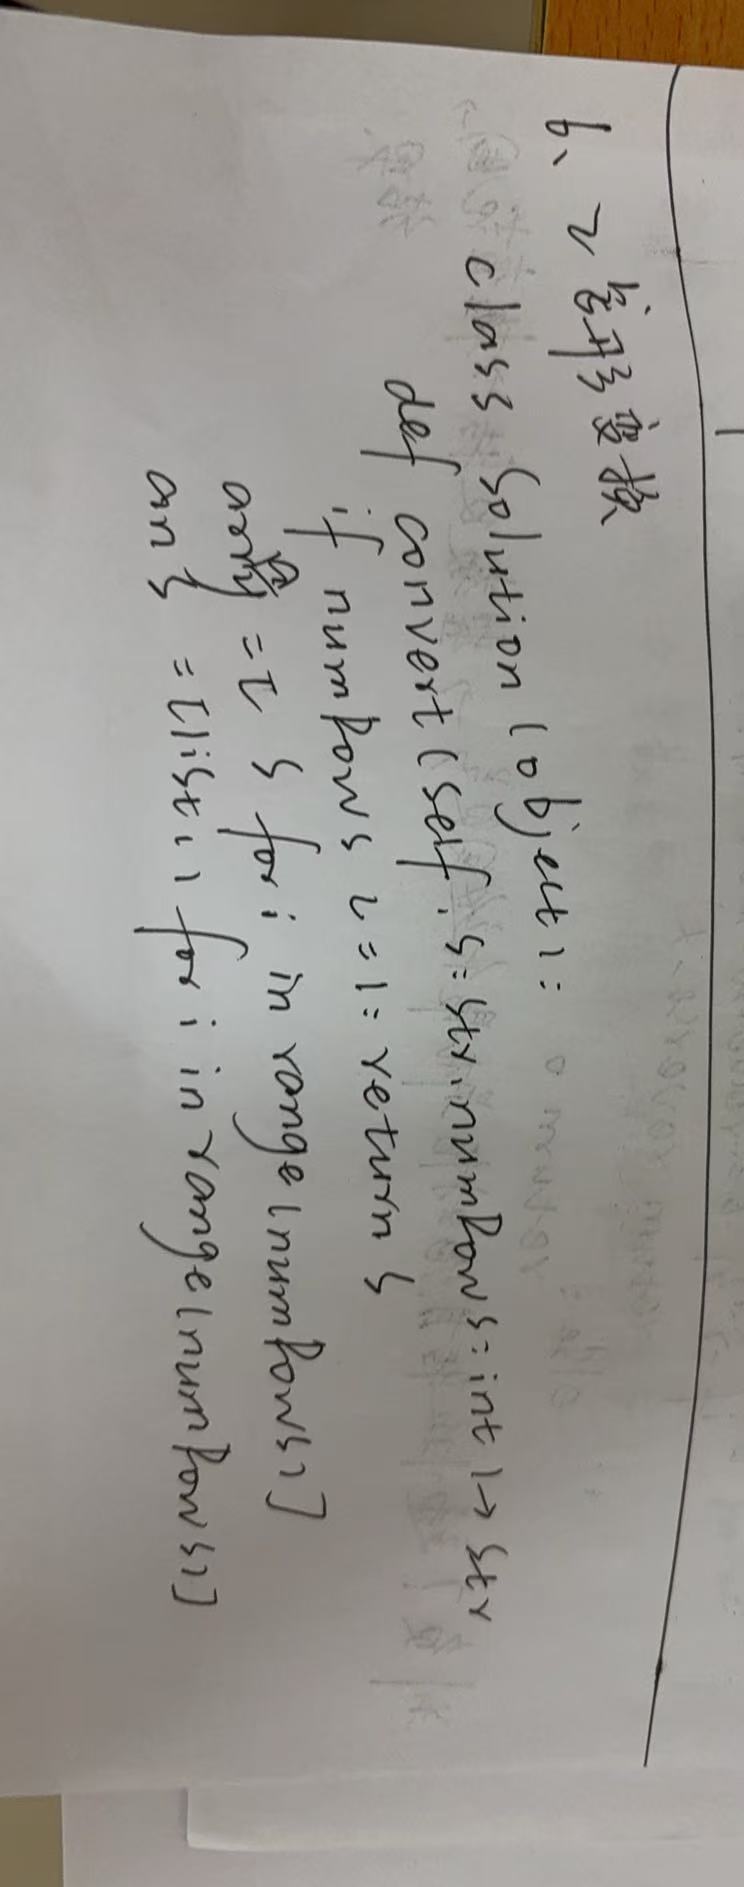 6、Z字形变换
class Solution(object):
def convert(self, s: str, numRows: int) -> str
if numRows == 1: return s
= [ s for i in range(numRows)]
ans = [list() for i in range(numRows)]